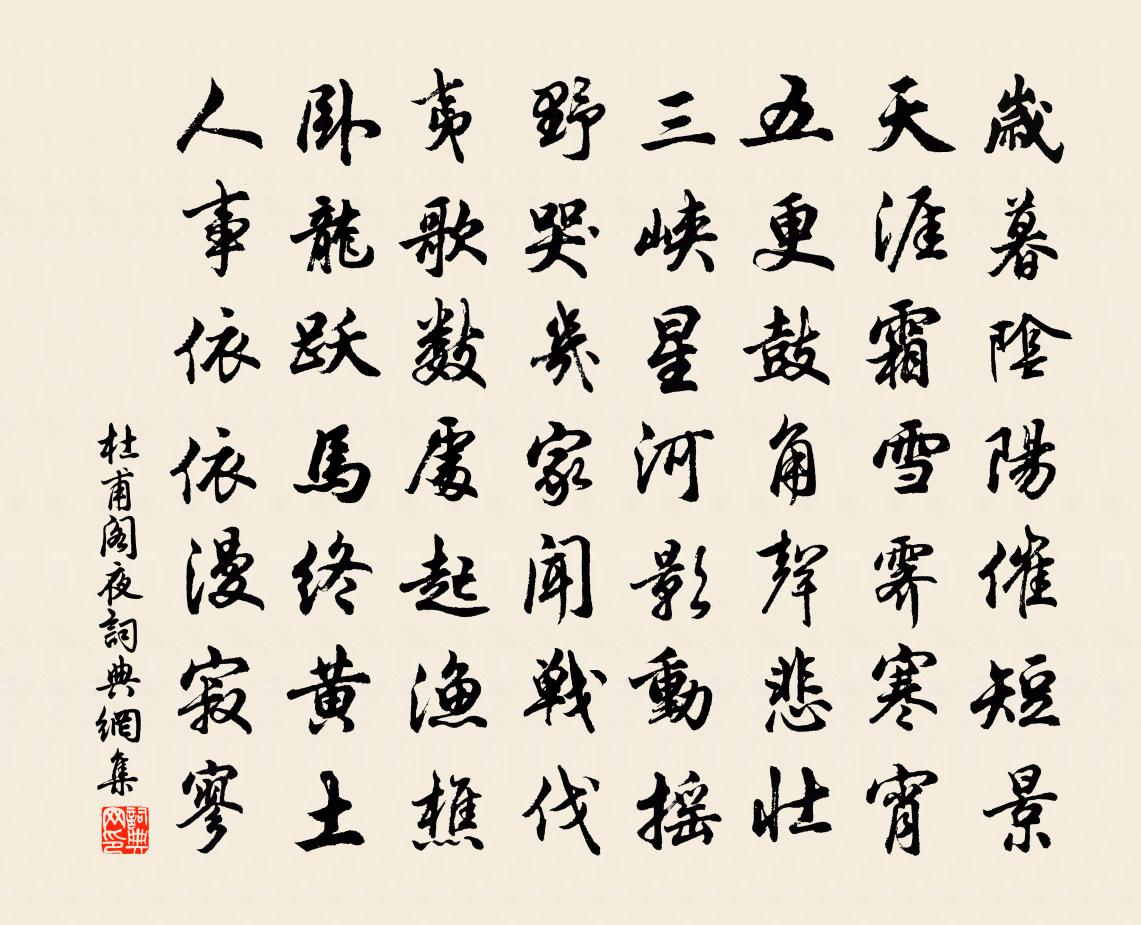 歲暮陰陽催短景
天涯霜雪霽寒宵
五更鼓角聲悲壯
三峽星河影動搖
野哭幾家聞戰伐
夷歌數處起漁樵
臥龍躍馬終黃土
人事依依漫寂寥
杜甫閣夜詞典網集
詞典
网印